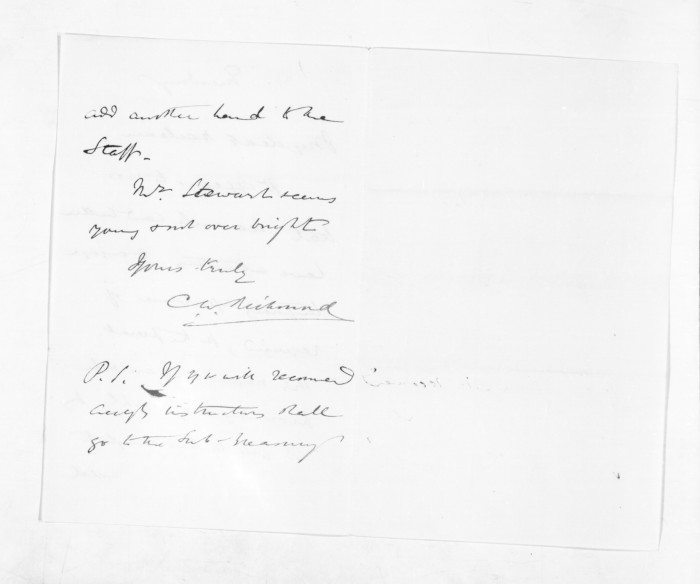 add another hand to the
Staff.
Mr. Stewart seems
young & not over bright
Yours truly
C. W. Richmond
P.S. If you will recommend
instructions shall
go to the Sub-Treasury